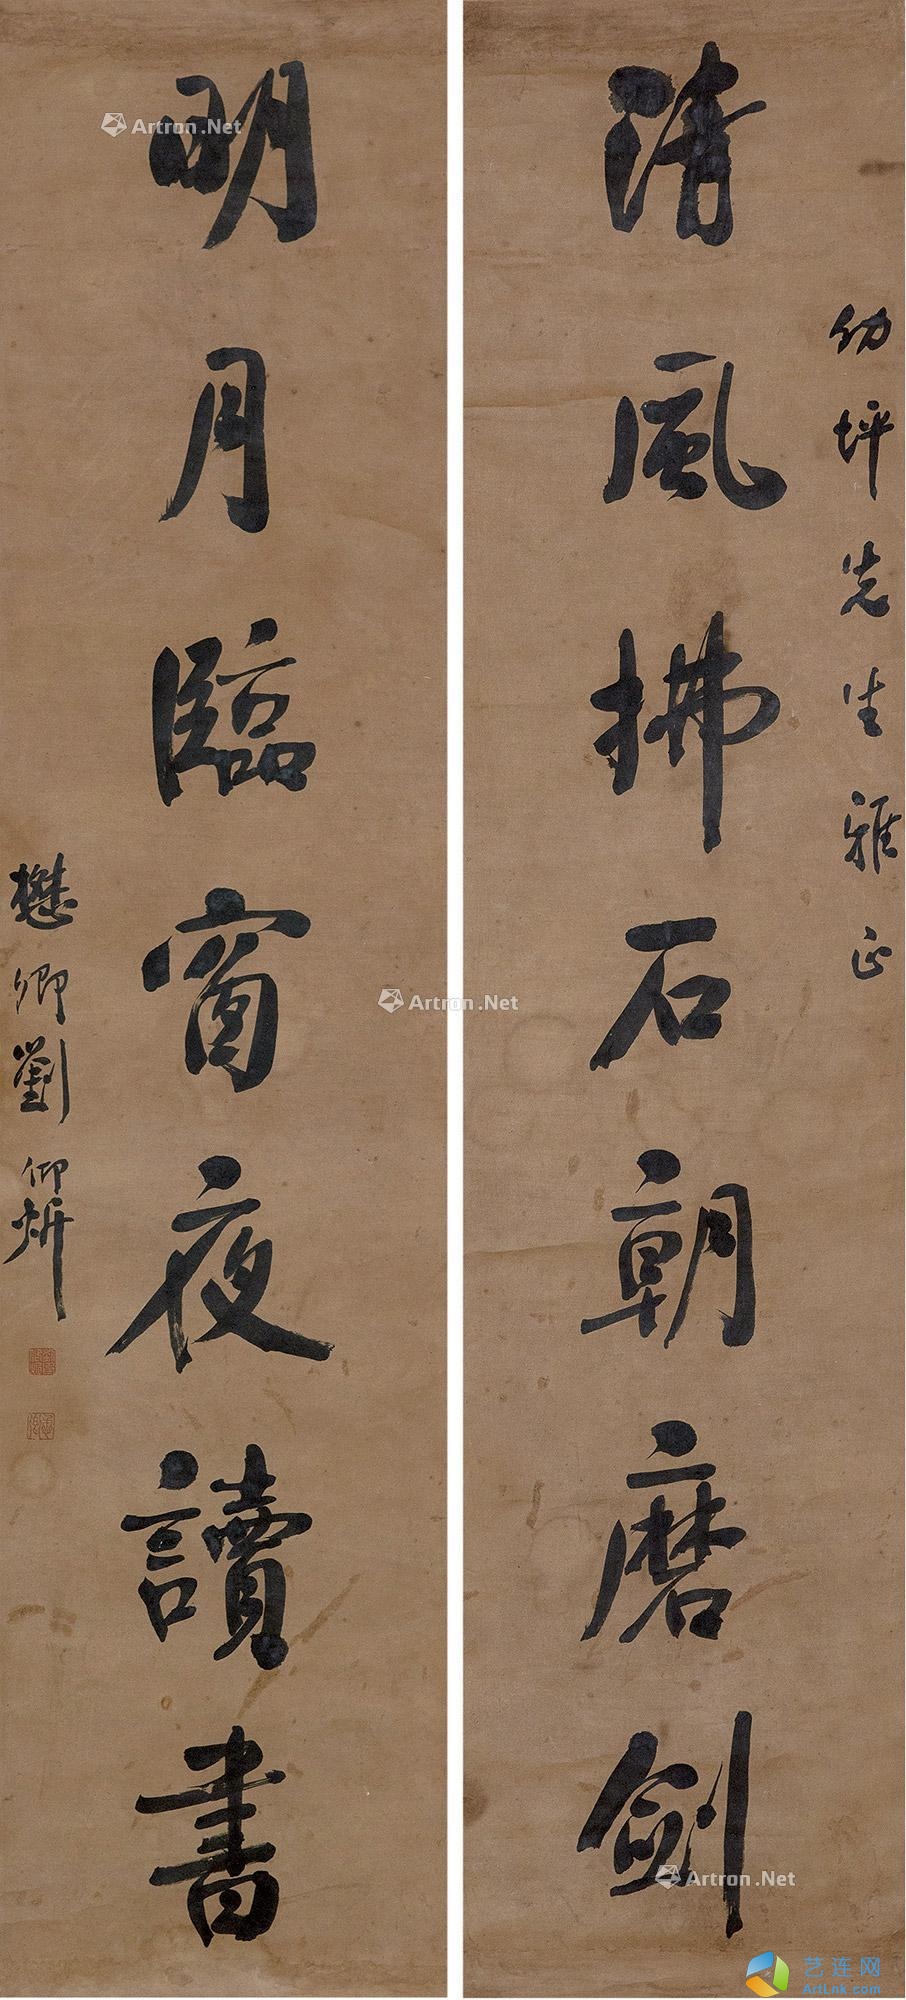 幼坪先生雅正
清風拂石朝磨劍
明月臨窗夜讀書
懋卿劉仰炘
Artron.Net
Artron.Net
Artron.Net
艺连网
ArtLnk.com